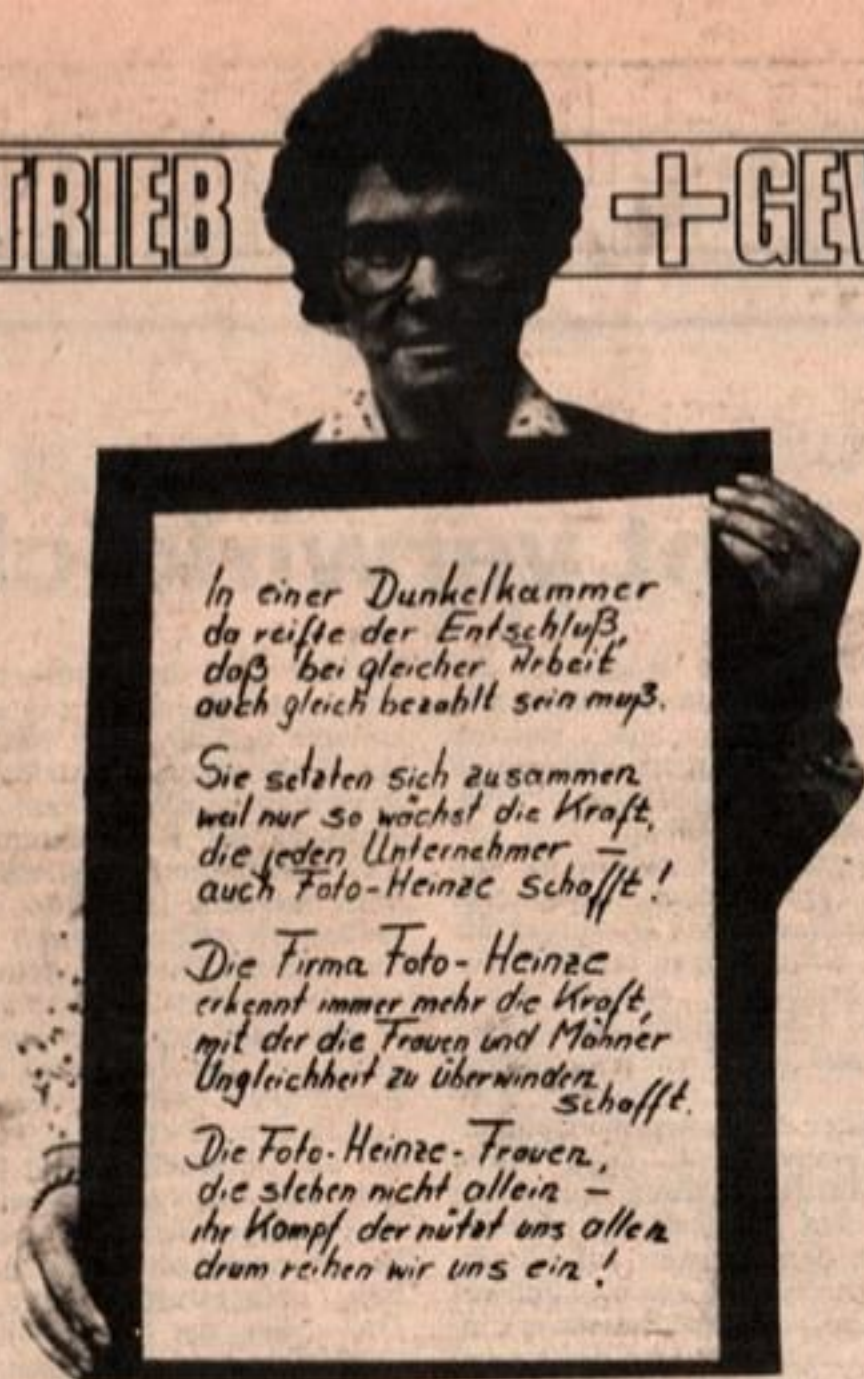 TRIEB +GEW
In einer Dunkelkammer
da reifte der Entschluß,
daß bei gleicher Arbeit
auch gleich bezahlt sein muß.
Sie setzten sich zusammen
weil nur so wächst die Kraft,
die jeden Unternehmer –
auch Foto-Heinze schafft!
Die Firma Foto-Heinze
erkennt immer mehr die Kraft,
mit der die Frauen und Männer
Ungleichheit zu überwinden
schafft.
Die Foto-Heinze-Frauen,
die stehen nicht allein –
ihr Kampf der nützt uns allen
drum reihen wir uns ein!